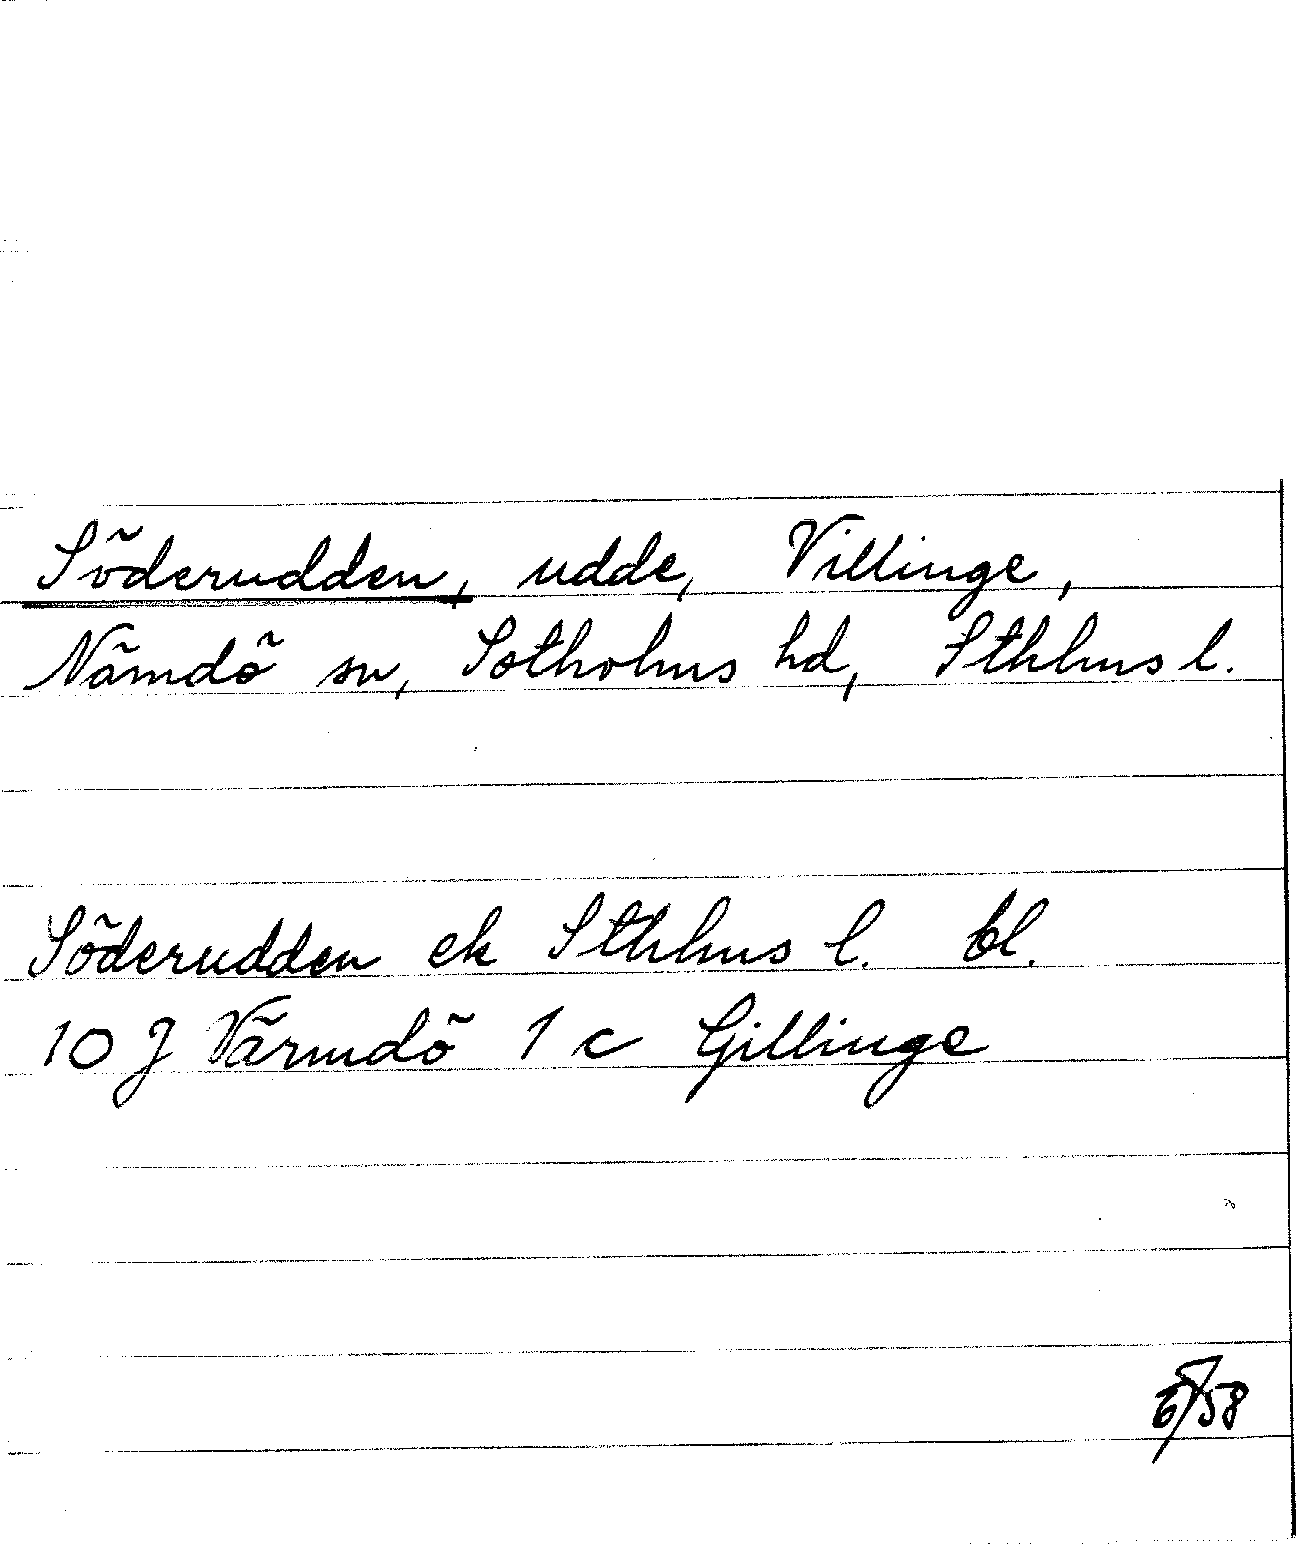 Söderudden, udde, Villinge,
Nämdö sn, Sotholms hd, Sthlms l.
Söderudden ek Sthlms l. bl.
10 J Värmdö 1 c Gillinge